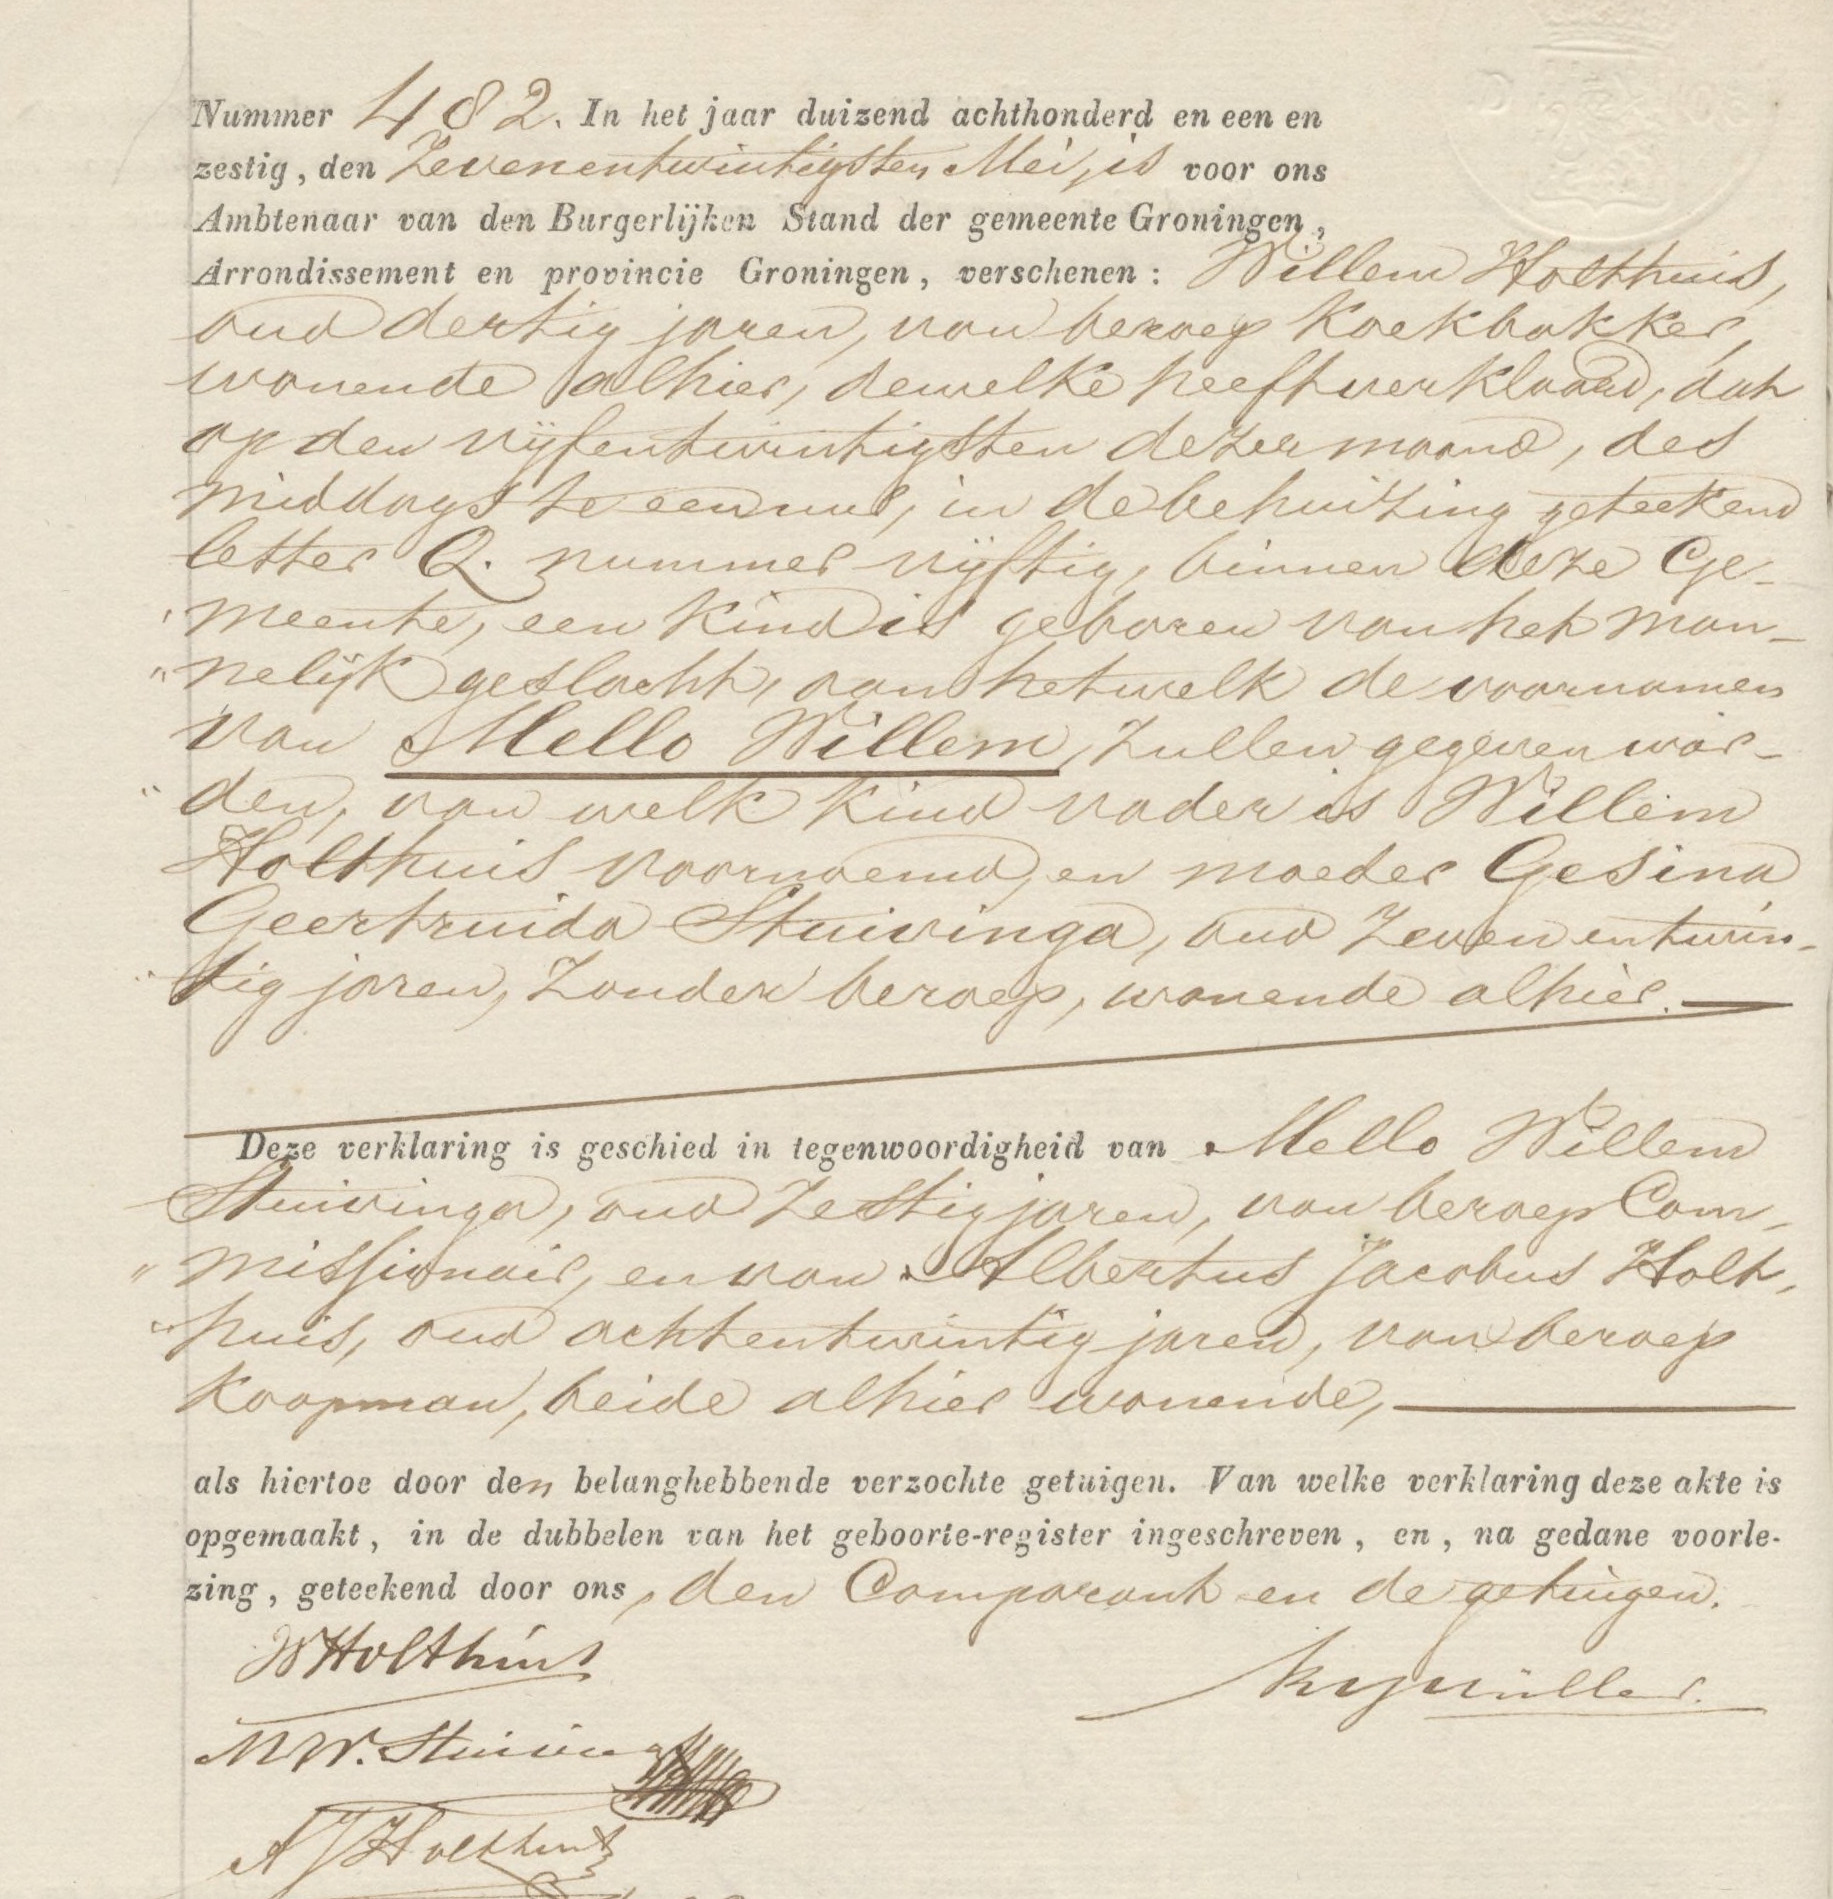 Nummer 482. In het jaar duizend achthonderd en een en
zestig, den Zevenentwintigsten Mei, is voor ons
Ambtenaar van den Burgerlijken Stand der gemeente Groningen,
Arrondissement en provincie Groningen, verschenen: Willem Holthuis,
oud dertig jaren, van beroep Koekbakker,
wonende alhier, dewelke heeft verklaard, dat
op den vijfentwintigsten dezer maand, des
middags te een uur, in de behuizing geteekend
letter Q. nummer vijftig, binnen deze Ge-
meente, een kind is geboren van het man-
nelijk geslacht, aan hetwelk de voornamen
van Mello Willem, zullen gegeven wor-
den, van welk kind vader is Willem
Holthuis voornoemd, en moeder Gesina
Geertruida Stuivinga, oud Zeven entwin-
tig jaren, zonder beroep, wonende alhier.
Deze verklaring is geschied in tegenwoordigheid van Mello Willem
Stuivinga, oud Zestig jaren, van beroep Com-
missionair, en van Albertus Jacobus Holt-
huis, oud achtentwintig jaren, van beroep
Koopman, beide alhier wonende,
als hiertoe door den belanghebbende verzochte getuigen. Van welke verklaring deze akte is
opgemaakt, in de dubbelen van het geboorte-register ingeschreven, en, na gedane voorle-
zing, geteekend door ons, den Comparant en de getuigen.
W Holthuis
M W. Stuivinga
A J Holthuis